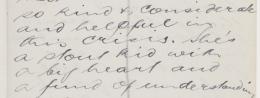 so kind & considerate
and helpful in
this crisis. She's
a stout kid with
a big heart and
a fund of understanding